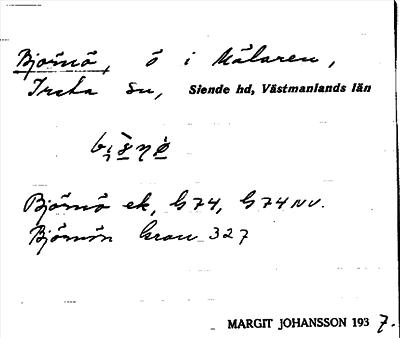 Björnö, ö i Mälaren,
Irsta sn, Siende hd, Västmanlands län
Björnö ek, G74, G74NV.
Björnön Gran 327
MARGIT JOHANSSON 1937.